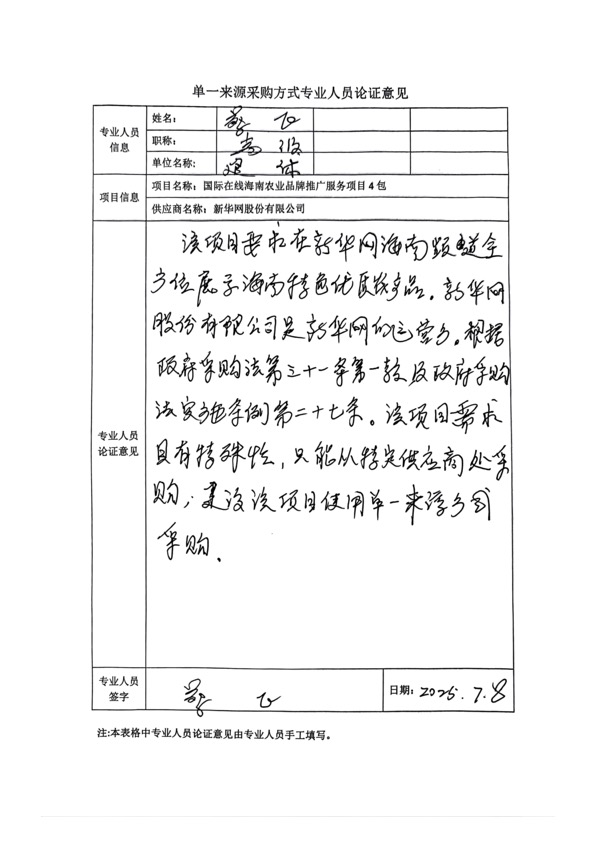 单一来源采购方式专业人员论证意见
专业人员信息
姓名：
职称： 高级
单位名称: 退休
项目信息
项目名称：国际在线海南农业品牌推广服务项目4包
供应商名称：新华网股份有限公司
专业人员论证意见
该项目要求在新华网海南频道全
方位展示海南特色优质农产品。新华网
股份有限公司是新华网的运营方。根据
政府采购法第三十一条第一款及政府采购
法实施条例第二十七条。该项目需求
具有特殊性，只能从特定供应商处采
购，建议该项目使用单一来源方式
采购.
专业人员签字
日期: 2025.7.8
注:本表格中专业人员论证意见由专业人员手工填写。